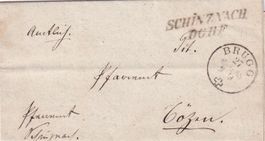 SCHINZNACH
DORF
Amtlich.
Tit.
BRUGG
Pfarramt
Pfarramt
Bözen.